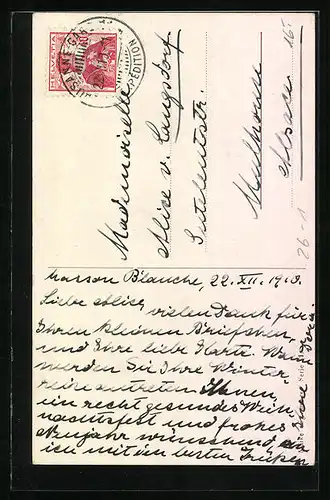 HELVETIA
LAUSANNE GARE
EXPEDITION
Mademoiselle
Alice v. Langsdorf
Mulhouse
Alsace
26-1
Maison Blanche, 22. XII. 1913.
Liebe Alice, vielen Dank für
Ihren kleinen Briefchen,
und Ihre liebe Karte. Wann
werden Sie Ihre Winter-
reise antreten. Ihnen,
ein recht gesundes Weih-
nachtsfest und frohes
Neujahr wünschend, bin
ich mit den besten Grüßen
Ihre